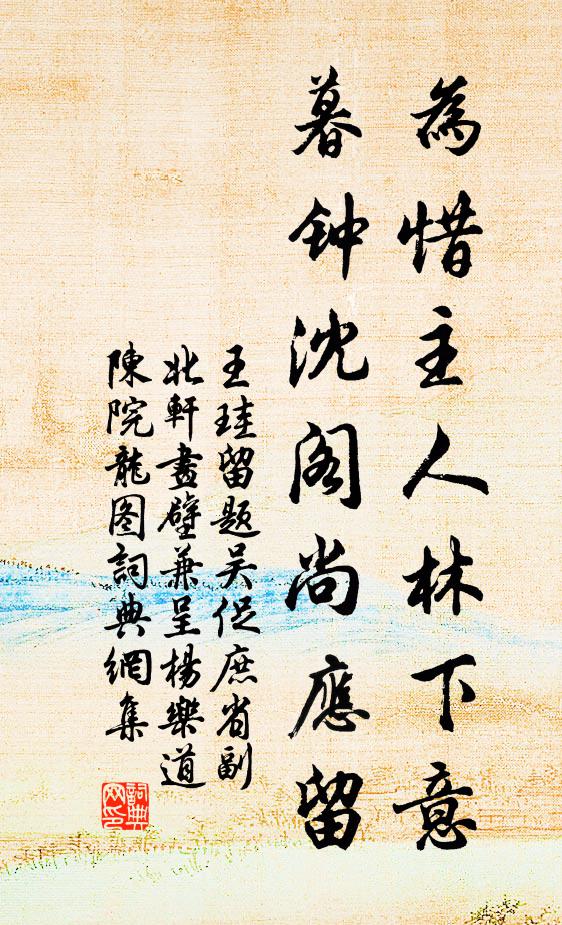 為惜主人林下意
暮钟沈阁尚應留
王珪留题吴促庶省副
北軒畫壁兼呈楊樂道
陳院龍图詞典網集
詞典
网印